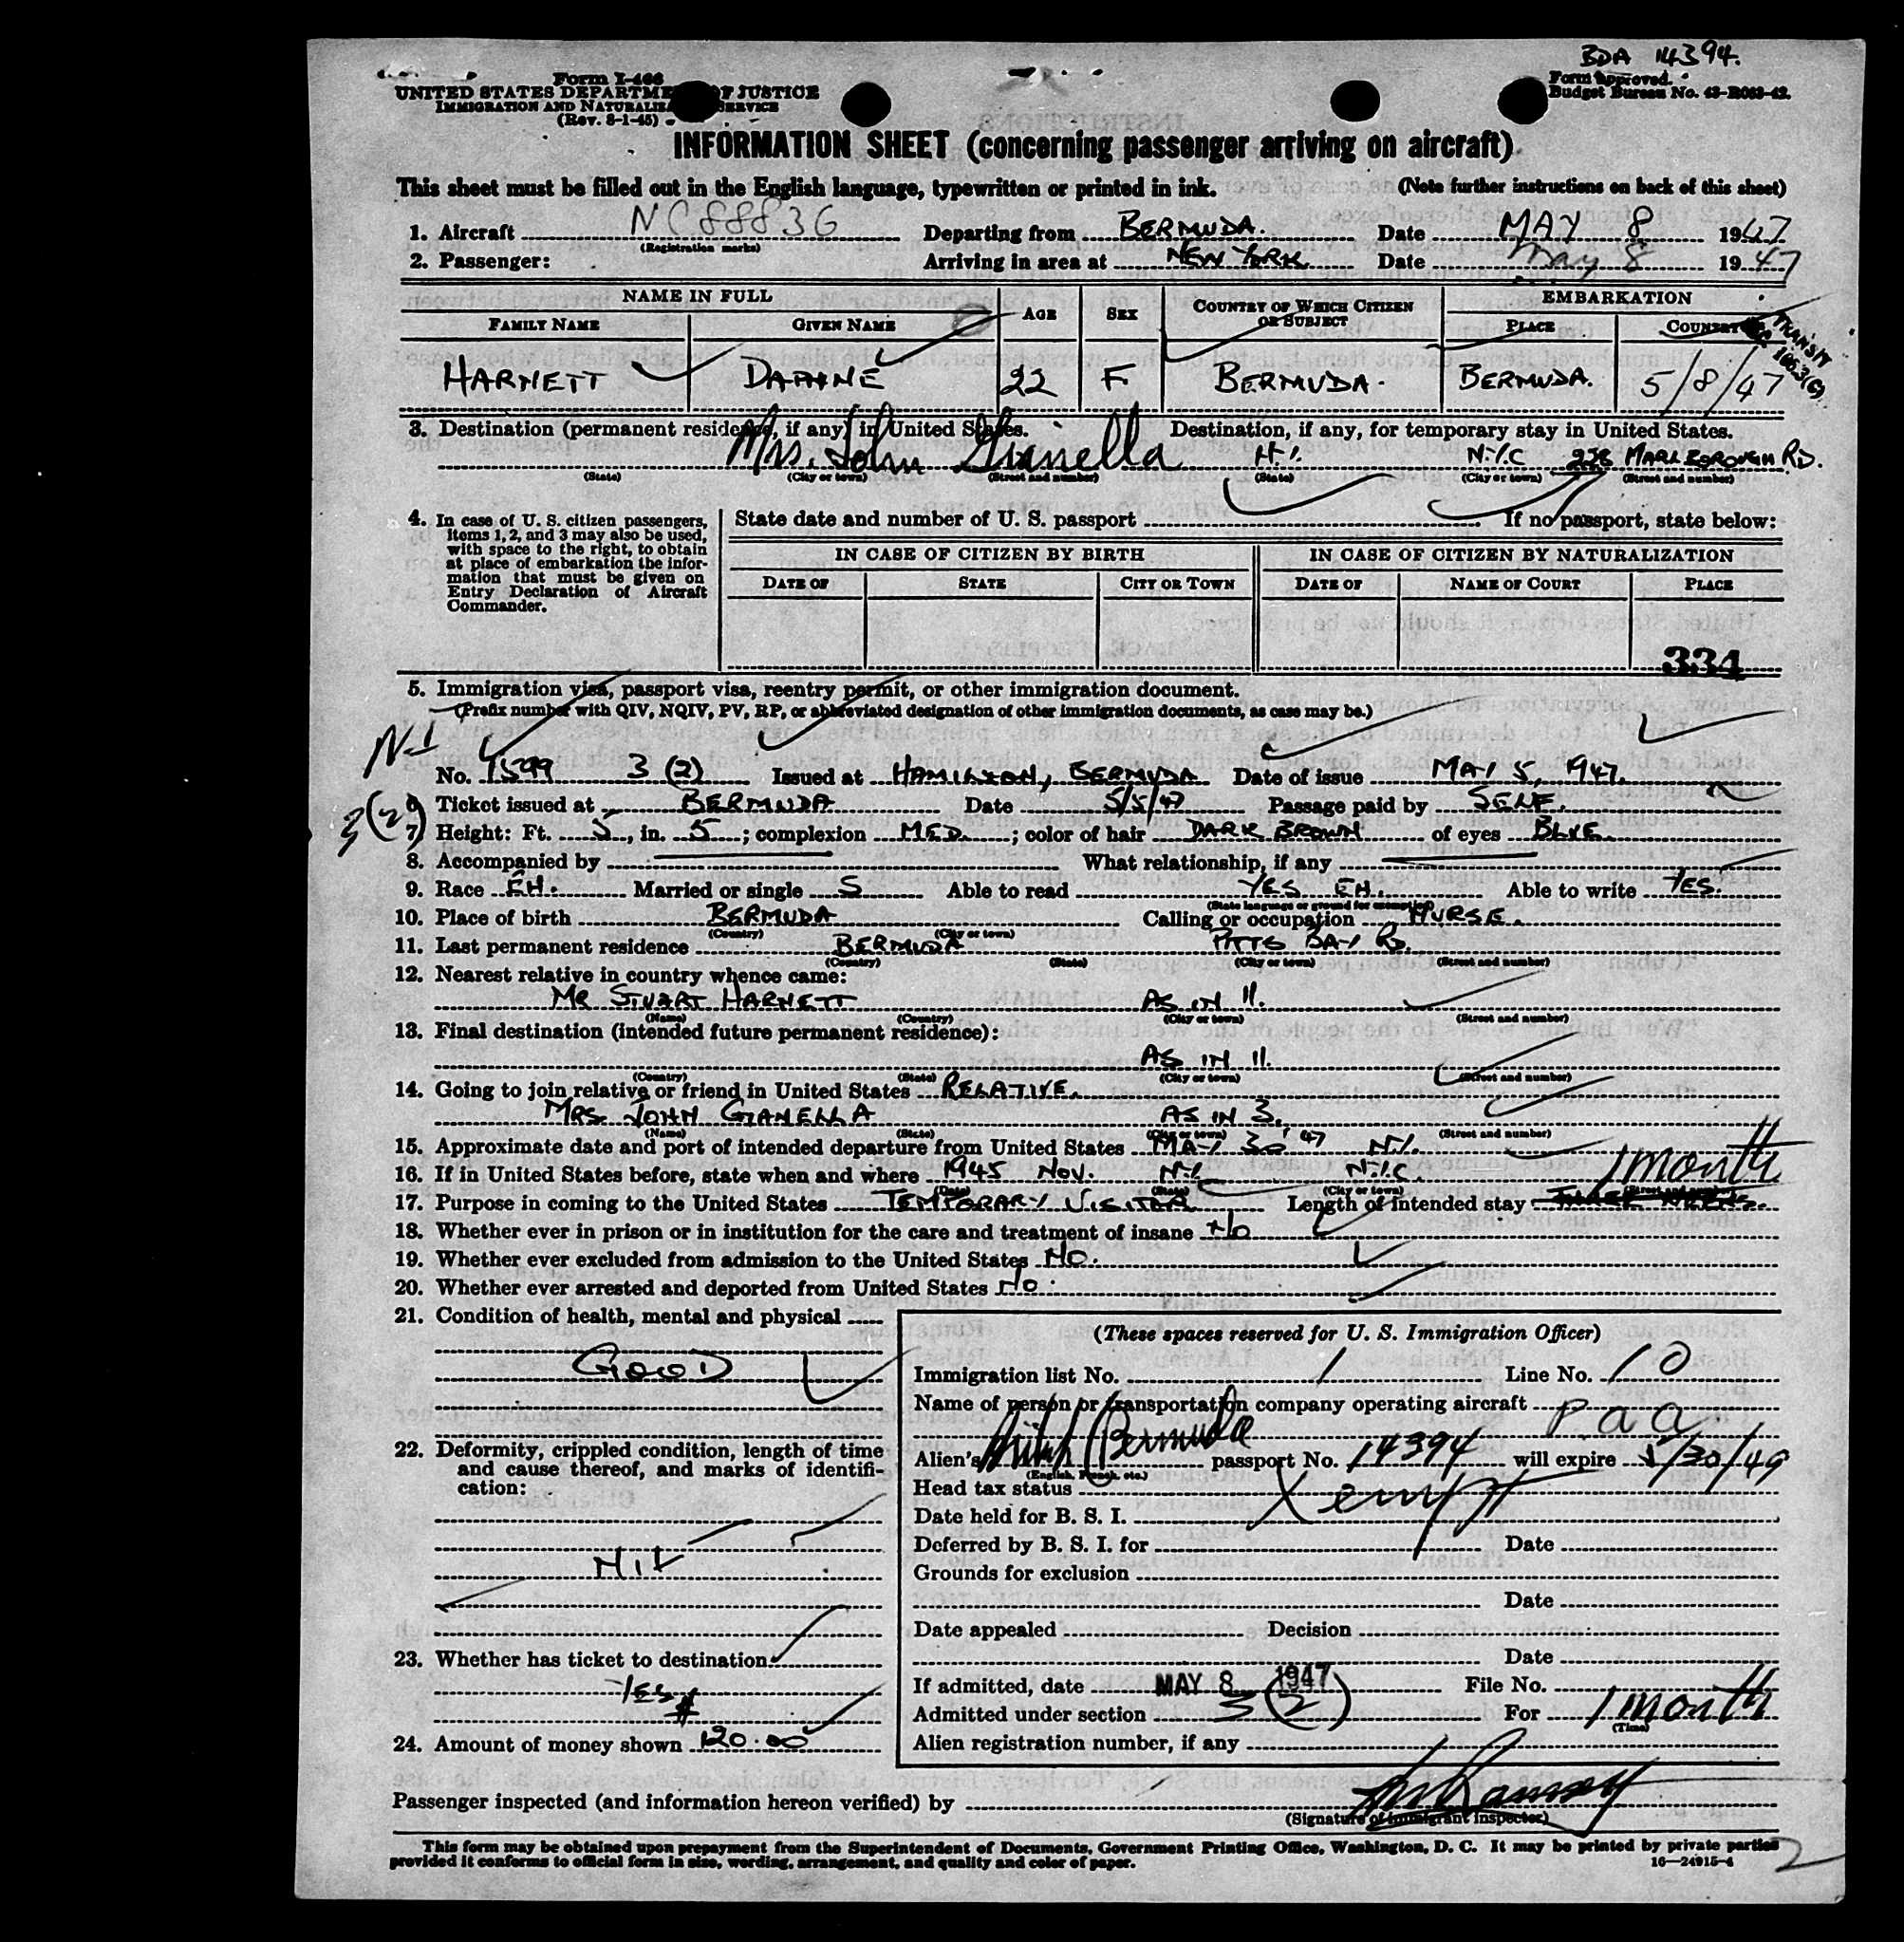 BDA 14394.
Form I-466
UNITED STATES DEPARTMENT OF JUSTICE
IMMIGRATION AND NATURALIZATION SERVICE
(Rev. 8-1-45)
Form approved.
Budget Bureau No. 43-R083-42.
INFORMATION SHEET (concerning passenger arriving on aircraft)
This sheet must be filled out in the English language, typewritten or printed in ink. (Note further instructions on back of this sheet)
1. Aircraft NC88836 Departing from BERMUDA. Date MAY 8 1947
(Registration marks)
2. Passenger: Arriving in area at NEW YORK Date May 8 1947
NAME IN FULL AGE SEX COUNTRY OF WHICH CITIZEN OR SUBJECT EMBARKATION
FAMILY NAME GIVEN NAME PLACE COUNTRY
TRANSIT
HARNETT DAPHNE 22 F BERMUDA. BERMUDA. 5/8/47
3. Destination (permanent residence, if any) in United States. Destination, if any, for temporary stay in United States.
Mrs. John Gianella N.Y. N.Y.C 228 MARLBOROUGH RD.
(State) (City or town) (Street and number) (State) (City or town) (Street and number)
4. In case of U. S. citizen passengers, items 1, 2, and 3 may also be used, with space to the right, to obtain at place of embarkation the information that must be given on Entry Declaration of Aircraft Commander.
State date and number of U. S. passport If no passport, state below:
IN CASE OF CITIZEN BY BIRTH IN CASE OF CITIZEN BY NATURALIZATION
DATE OF STATE CITY OR TOWN DATE OF NAME OF COURT PLACE
334
5. Immigration visa, passport visa, reentry permit, or other immigration document.
(Prefix number with QIV, NQIV, PV, RP, or abbreviated designation of other immigration documents, as case may be.)
No. 1599 3 (2) Issued at HAMILTON, BERMUDA Date of issue MAY 5, 1947.
3(2)
6. Ticket issued at BERMUDA Date 5/5/47 Passage paid by SELF.
7. Height: Ft. 5, in. 5; complexion MED.; color of hair DARK BROWN of eyes BLUE.
8. Accompanied by What relationship, if any
9. Race EH. Married or single S Able to read YES EH. Able to write YES.
(State language or ground for exemption)
10. Place of birth BERMUDA Calling or occupation NURSE.
(Country) (City or town)
11. Last permanent residence BERMUDA PITTS BAY RD.
(Country) (State) (City or town) (Street and number)
12. Nearest relative in country whence came:
MR STUART HARNETT AS IN 11.
(Name) (Country) (City or town) (Street and number)
13. Final destination (intended future permanent residence):
AS IN 11.
(Country) (State) (City or town) (Street and number)
14. Going to join relative or friend in United States RELATIVE.
MRS. JOHN GIANELLA AS IN 3.
(Name) (State) (City or town) (Street and number)
15. Approximate date and port of intended departure from United States MAY 30 '47 N.Y.
16. If in United States before, state when and where 1945 NOV. N.Y. N.Y.C.
(Date) (State) (City or town) (Street and number)
1 month
17. Purpose in coming to the United States TEMPORARY VISITOR Length of intended stay
18. Whether ever in prison or in institution for the care and treatment of insane NO
19. Whether ever excluded from admission to the United States NO.
20. Whether ever arrested and deported from United States NO.
21. Condition of health, mental and physical
GOOD
22. Deformity, crippled condition, length of time and cause thereof, and marks of identification:
NIL
23. Whether has ticket to destination
YES
24. Amount of money shown $ 120.00
(These spaces reserved for U. S. Immigration Officer)
Immigration list No. 1 Line No. 10
Name of person or transportation company operating aircraft
P a a
Alien's Bermuda passport No. 14394 will expire /30/49
(English, French, etc.)
Head tax status Xempt
Date held for B. S. I.
Deferred by B. S. I. for Date
Grounds for exclusion
Date
Date appealed Decision
Date
If admitted, date MAY 8 1947 File No.
Admitted under section 3 (2) For 1 month
(Time)
Alien registration number, if any
Passenger inspected (and information hereon verified) by
(Signature of immigrant inspector)
This form may be obtained upon prepayment from the Superintendent of Documents, Government Printing Office, Washington, D. C. It may be printed by private parties
provided it conforms to official form in size, wording, arrangement, and quality and color of paper. 16—24915-4
2